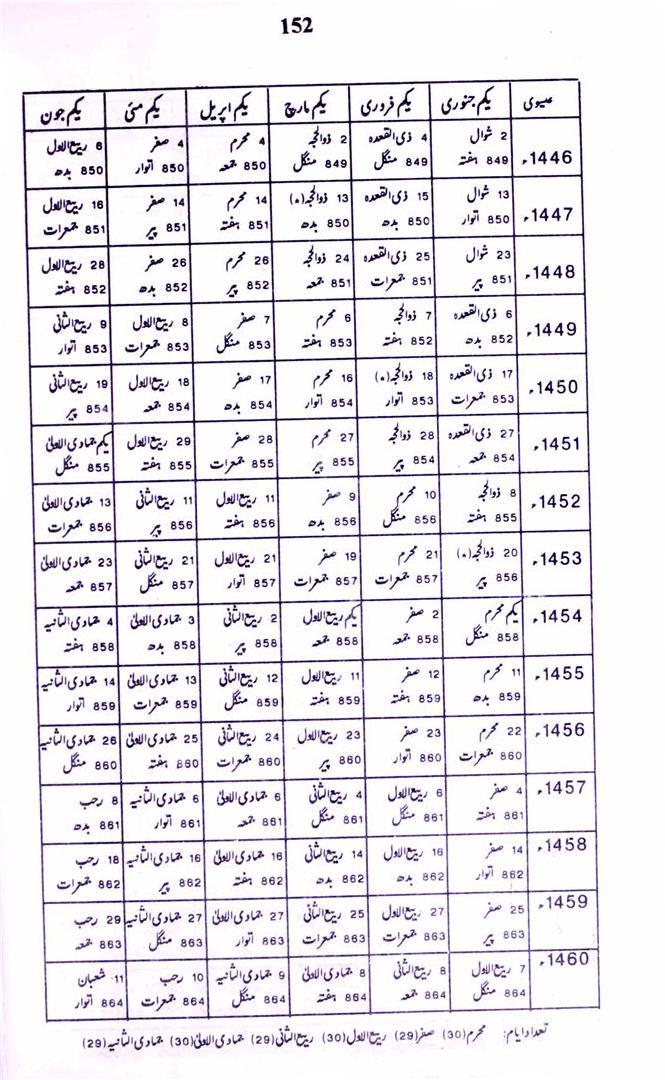 152
عیسوی یکم جنوری یکم فروری یکم مارچ یکم اپریل یکم مئی یکم جون
1446ء 2 شوال 849 ہفتہ 4 ذی القعدہ 849 منگل 2 ذوالحجہ 849 منگل 4 محرم 850 جمعہ 4 صفر 850 اتوار 6 ربیع الاول 850 بدھ
1447ء 13 شوال 850 اتوار 15 ذی القعدہ 850 بدھ 13 ذوالحجہ (*) 850 بدھ 14 محرم 851 ہفتہ 14 صفر 851 پیر 16 ربیع الاول 851 جمعرات
1448ء 23 شوال 851 پیر 25 ذی القعدہ 851 جمعرات 24 ذوالحجہ 851 جمعہ 26 محرم 852 پیر 26 صفر 852 بدھ 28 ربیع الاول 852 ہفتہ
1449ء 6 ذی القعدہ 852 بدھ 7 ذوالحجہ 852 ہفتہ 6 محرم 853 ہفتہ 7 صفر 853 منگل 8 ربیع الاول 853 جمعرات 9 ربیع الثانی 853 اتوار
1450ء 17 ذی القعدہ 853 جمعرات 18 ذوالحجہ (*) 853 اتوار 16 محرم 854 اتوار 17 صفر 854 بدھ 18 ربیع الاول 854 جمعہ 19 ربیع الثانی 854 پیر
1451ء 27 ذی القعدہ 854 جمعہ 28 ذوالحجہ 854 پیر 27 محرم 855 پیر 28 صفر 855 جمعرات 29 ربیع الاول 855 ہفتہ یکم جمادی الاولیٰ 855 منگل
1452ء 8 ذوالحجہ 855 ہفتہ 10 محرم 856 منگل 9 صفر 856 بدھ 11 ربیع الاول 856 ہفتہ 11 ربیع الثانی 856 پیر 13 جمادی الاولیٰ 856 جمعرات
1453ء 20 ذوالحجہ (*) 856 پیر 21 محرم 857 جمعرات 19 صفر 857 جمعرات 21 ربیع الاول 857 اتوار 21 ربیع الثانی 857 منگل 23 جمادی الاولیٰ 857 جمعہ
1454ء یکم محرم 858 منگل 2 صفر 858 جمعہ یکم ربیع الاول 858 جمعہ 2 ربیع الثانی 858 پیر 3 جمادی الاولیٰ 858 بدھ 4 جمادی الثانیہ 858 ہفتہ
1455ء 11 محرم 859 بدھ 12 صفر 859 ہفتہ 11 ربیع الاول 859 ہفتہ 12 ربیع الثانی 859 منگل 13 جمادی الاولیٰ 859 جمعرات 14 جمادی الثانیہ 859 اتوار
1456ء 22 محرم 860 جمعرات 23 صفر 860 اتوار 23 ربیع الاول 860 پیر 24 ربیع الثانی 860 جمعرات 25 جمادی الاولیٰ 860 ہفتہ 26 جمادی الثانیہ 860 منگل
1457ء 4 صفر 861 ہفتہ 6 ربیع الاول 861 منگل 4 ربیع الثانی 861 منگل 6 جمادی الاولیٰ 861 جمعہ 6 جمادی الثانیہ 861 اتوار 8 رجب 861 بدھ
1458ء 14 صفر 862 اتوار 16 ربیع الاول 862 بدھ 14 ربیع الثانی 862 بدھ 16 جمادی الاولیٰ 862 ہفتہ 16 جمادی الثانیہ 862 پیر 18 رجب 862 جمعرات
1459ء 25 صفر 863 پیر 27 ربیع الاول 863 جمعرات 25 ربیع الثانی 863 جمعرات 27 جمادی الاولیٰ 863 اتوار 27 جمادی الثانیہ 863 منگل 29 رجب 863 جمعہ
1460ء 7 ربیع الاول 864 منگل 8 ربیع الثانی 864 جمعہ 8 جمادی الاولیٰ 864 ہفتہ 9 جمادی الثانیہ 864 منگل 10 رجب 864 جمعرات 11 شعبان 864 اتوار
تعداد ایام: محرم (30) صفر (29) ربیع الاول (30) ربیع الثانی (29) جمادی الاولیٰ (30) جمادی الثانیہ (29)